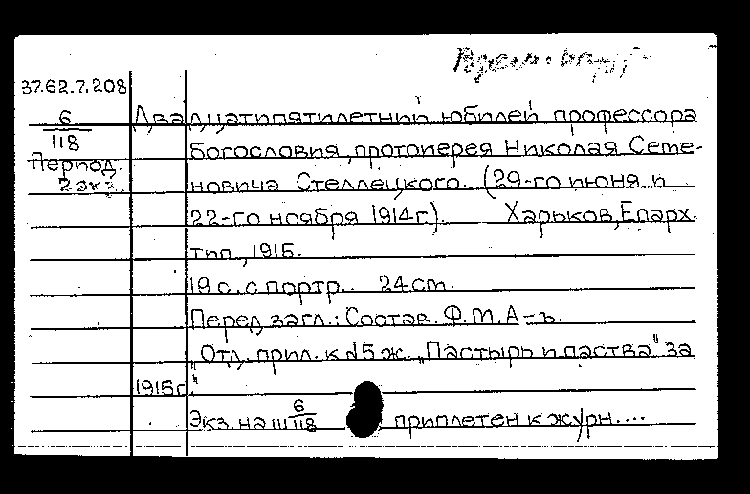 37.62.7.208
6
118
Период.
2 экз.
Двадцатипятилетний юбилей профессора
богословия, протоиерея Николая Семе-
новича Стеллецкого. (29-го июня и
22-го ноября 1914 г.). Харьков, Епарх.
тип., 1915.
19 с. с портр. 24 см.
Перед загл.: Состав. Ф.М.А-ъ.
"Отд. прил. к №5 ж. "Пастырь и паства" за
1915 г."
Экз. на ш 6/118 приплетен к журн....